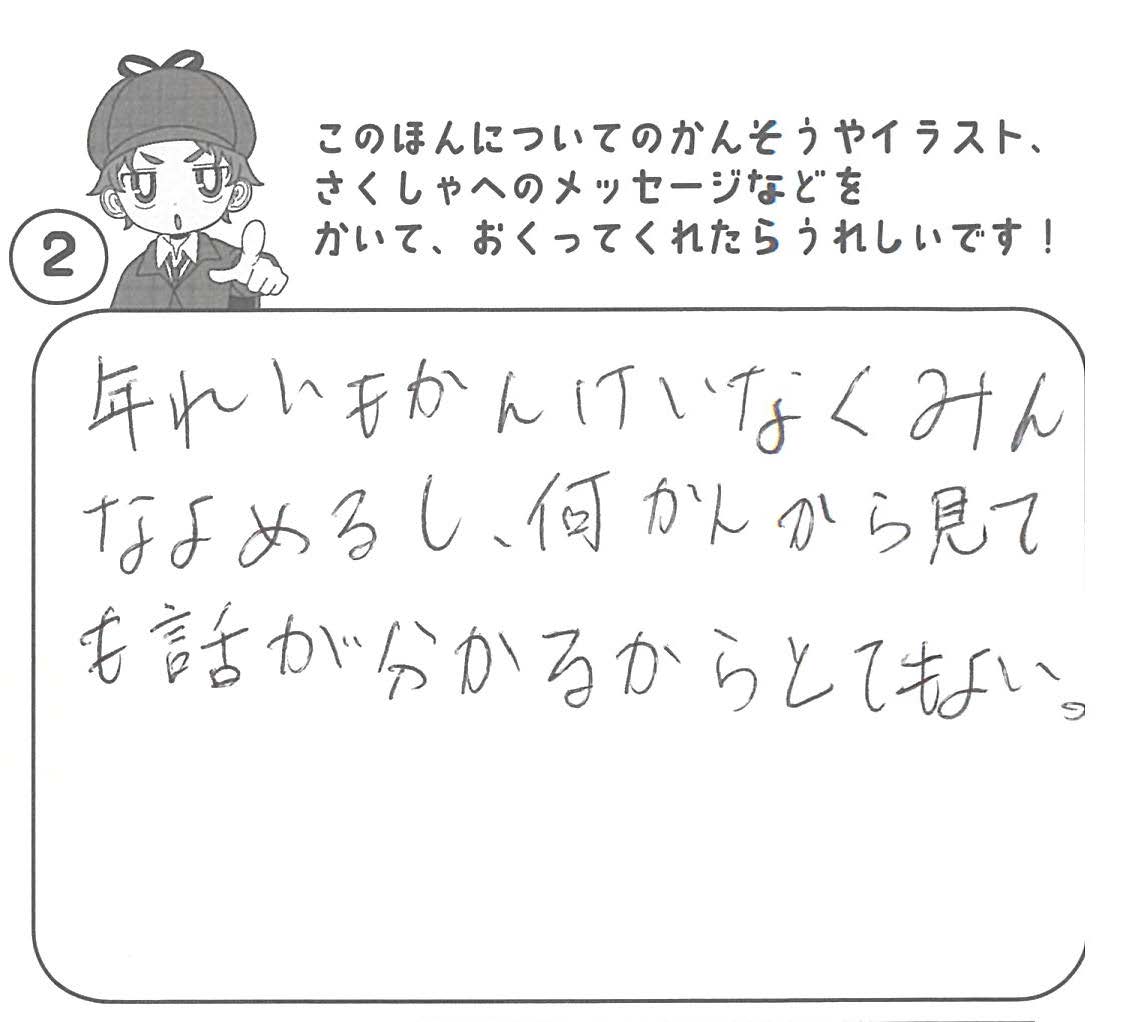 このほんについてのかんそうやイラスト、
さくしゃへのメッセージなどを
かいて、おくってくれたらうれしいです！
2
年れいもかんけいなくみん
なよめるし、何かんから見て
も話が分かるからとてもよい。